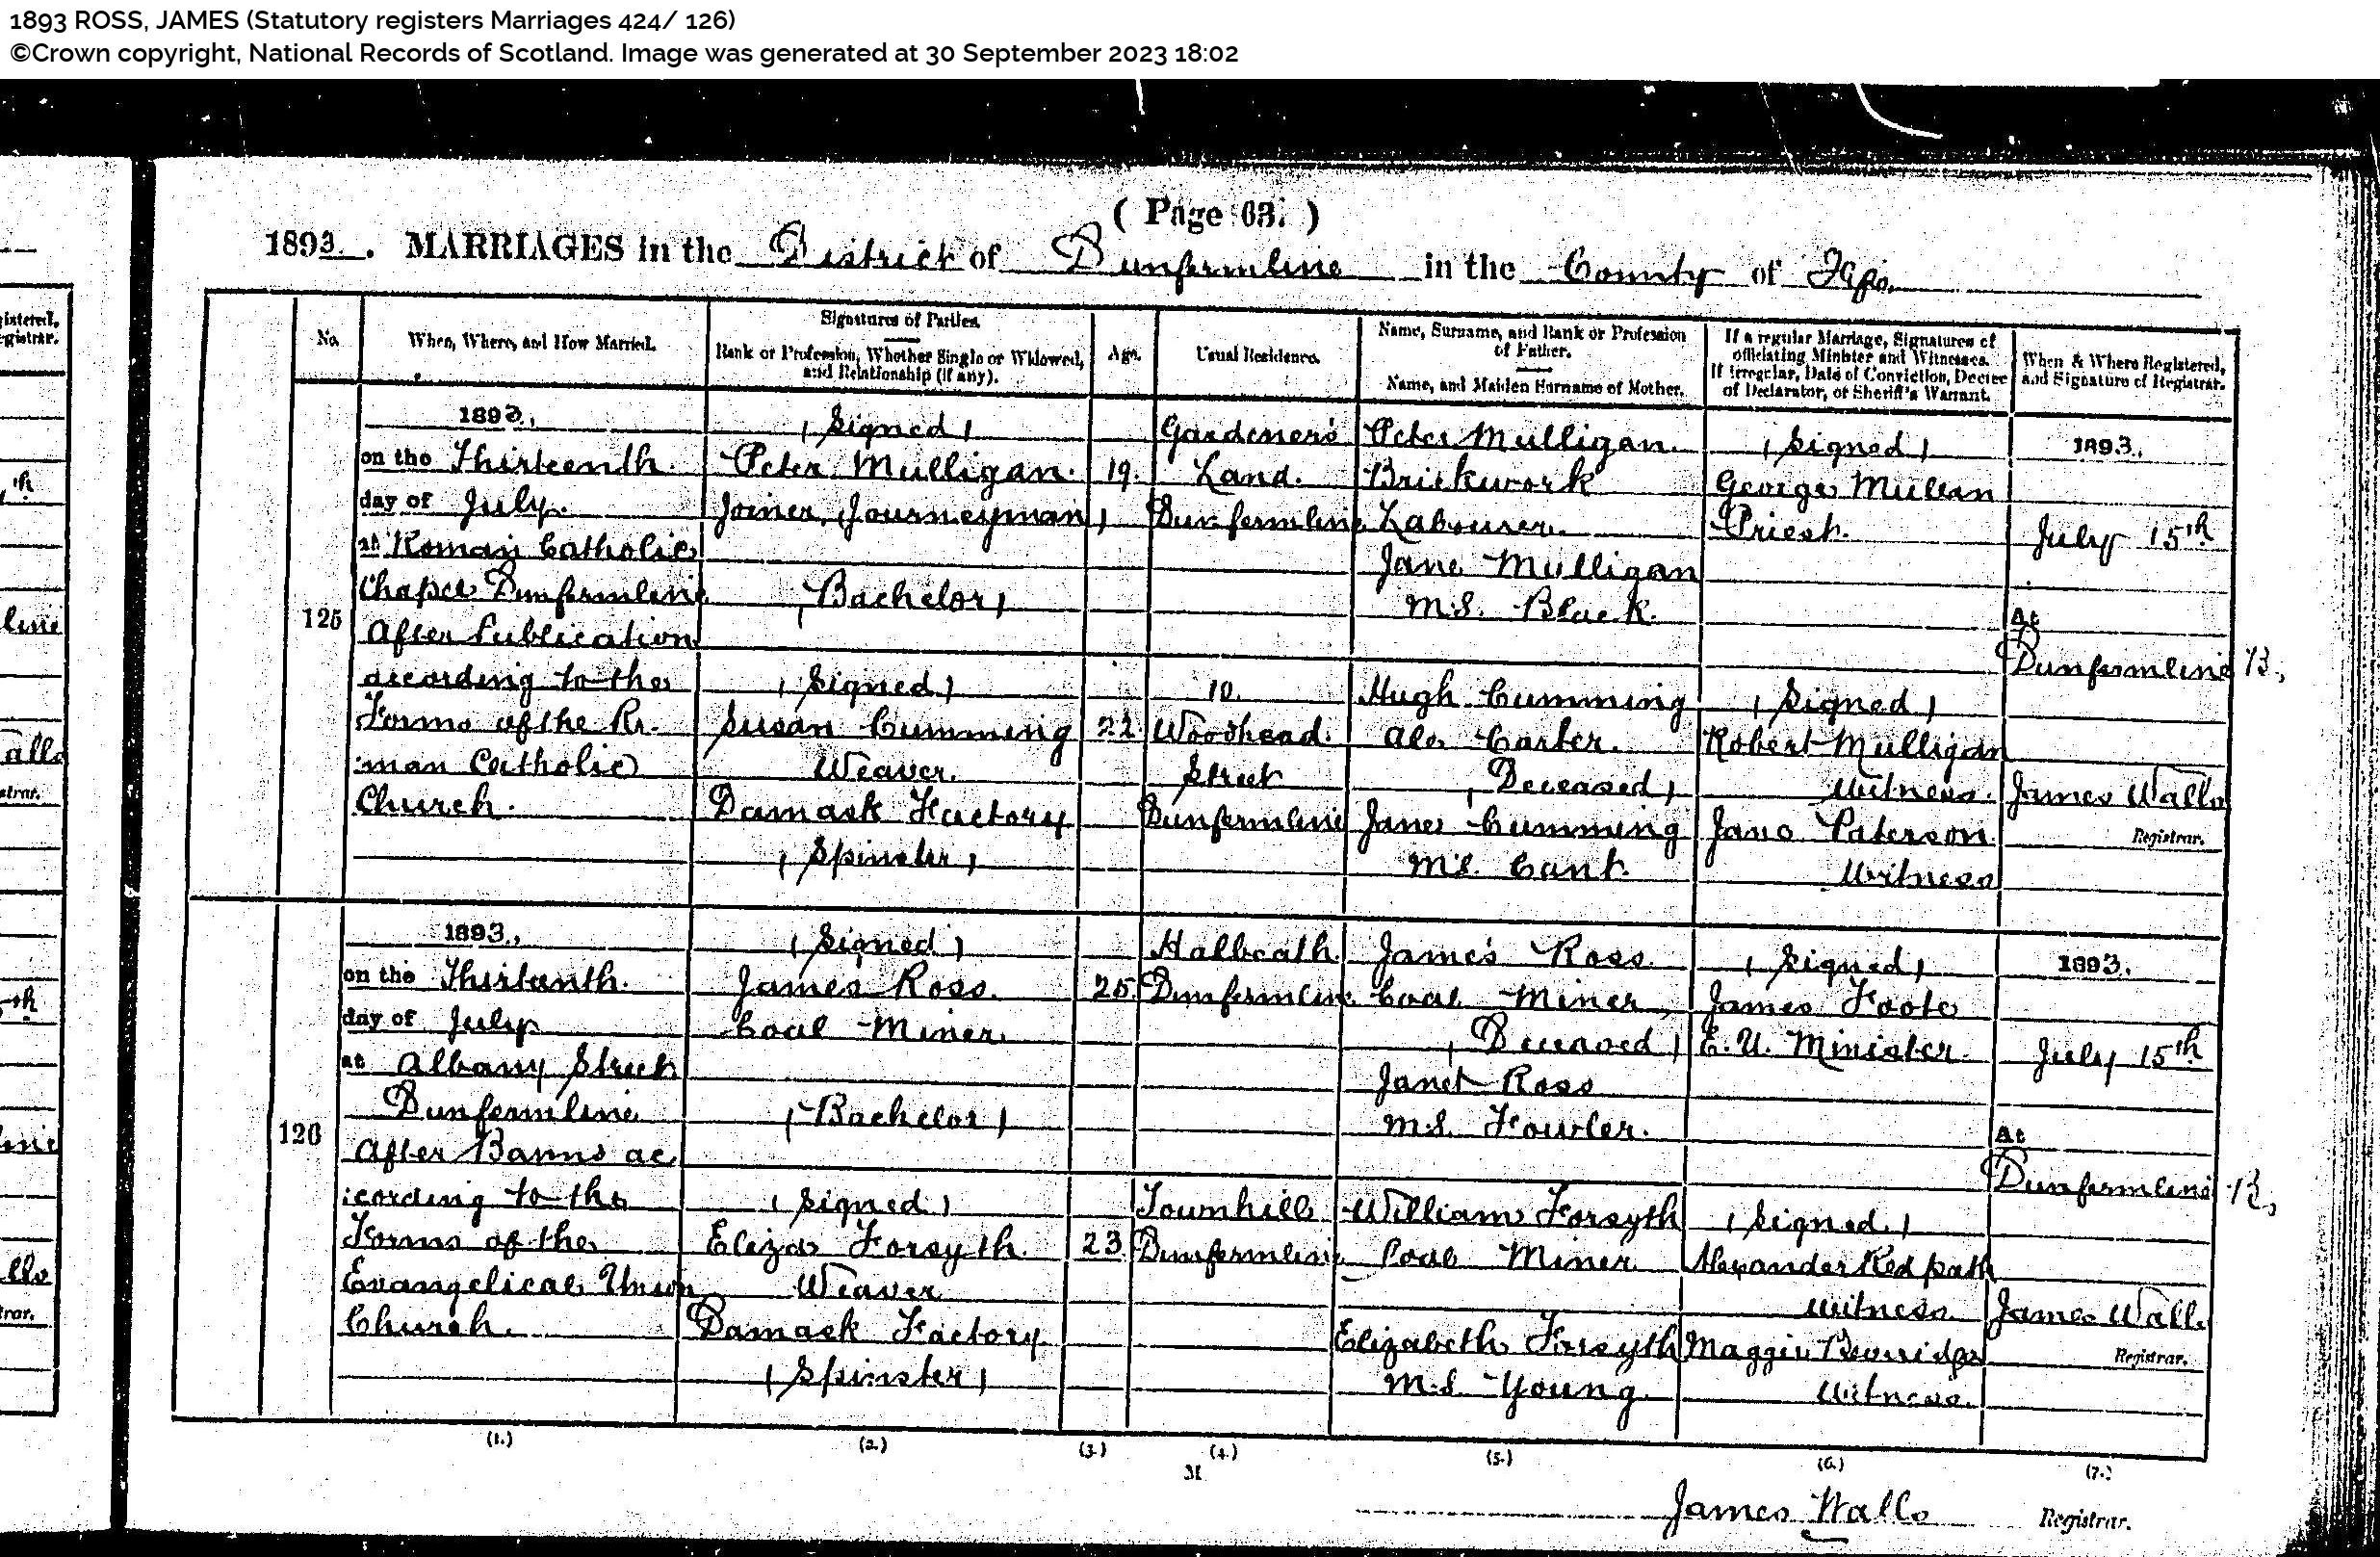 1893 ROSS, JAMES (Statutory registers Marriages 424/ 126)
©Crown copyright, National Records of Scotland. Image was generated at 30 September 2023 18:02
( Page 63. )
1893. MARRIAGES in the District of Dunfermline in the County of Fife
No.
When, Where, and How Married.
Signatures of Parties.
Rank or Profession, Whether Single or Widowed,
and Relationship (if any).
Age.
Usual Residence.
Name, Surname, and Rank or Profession
of Father.
Name, and Maiden Surname of Mother.
If a regular Marriage, Signatures of
officiating Minister and Witnesses.
If irregular, Date of Conviction, Decree
of Declarator, or Sheriff's Warrant.
When & Where Registered,
and Signature of Registrar.
125
1893.,
on the Thirteenth
day of July.
at Roman Catholic
Chapel Dunfermline
After Publication
according to the
Forms of the Ro-
man Catholic
Church.
(Signed)
Peter Mulligan.
Joiner (Journeyman)
(Bachelor)
(Signed)
Susan Cumming
Weaver.
Damask Factory
(Spinster)
19.
22
Gardener's
Land.
Dunfermline
10.
Woodhead
Street
Dunfermline
Peter Mulligan.
Brickwork
Labourer.
Jane Mulligan
M.S. Black.
Hugh Cumming
Ale Carter.
(Deceased)
Jane Cumming
M.S. Cant.
(Signed)
George Mullan
Priest.
(Signed)
Robert Mulligan
Witness.
Jane Paterson
Witness
1893.,
July 15th
At
Dunfermline
James Walls
Registrar.
126
1893.,
on the Thirteenth.
day of July
at Albany Street
Dunfermline
After Banns ac
cording to the
Forms of the
Evangelical Union
Church.
(Signed)
James Ross.
Coal Miner.
(Bachelor)
(Signed)
Eliza Forsyth.
Weaver
Damask Factory
(Spinster)
25
23
Halbeath
Dunfermline
Townhill
Dunfermline
James Ross
Coal Miner,
(Deceased)
Janet Ross
M.S. Fowler.
William Forsyth
Coal Miner
Elizabeth Forsyth
M.S. Young.
(Signed)
James Foote
E.U. Minister.
(Signed)
Alexander Redpath
Witness
Maggie Beveridge
Witness.
1893.
July 15th
At
Dunfermline
James Walls
Registrar.
(1.) (2.) (3.) (4.) (5.) (6.) (7.)
James Walls Registrar.